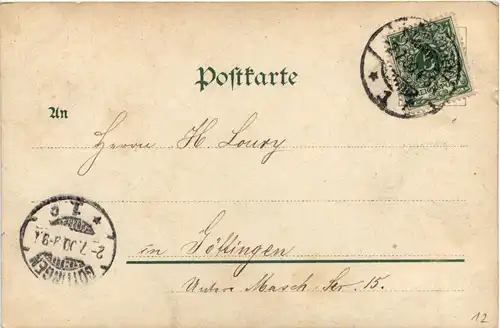 Postkarte
An
Herrn H. Loury
in Göttingen
Untere Masch Str. 15.
GÖTTINGEN
1 c
2-7.00.8-9V.
5
12